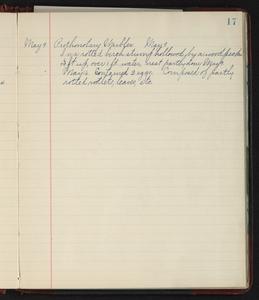 17
May 9 Prothonotary Warbler May 9
In a rotted birch stump hollowed by a woodpecker
3 ft up, over 1 ft water, nest partly done May 9
May 15 contained 3 eggs. Composed of partly
rotted rootlets, leaves, etc.